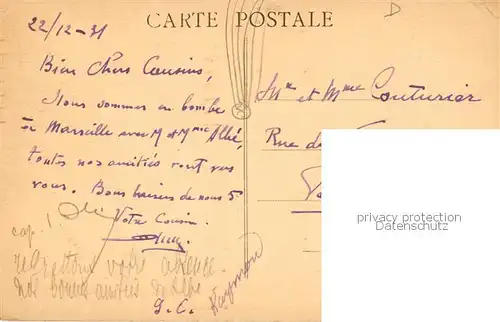 CARTE POSTALE
22/12-31
Bien Chers Cousins,
Nous sommes en bombe
à Marseille avec M et Mme
toutes nos amitiés vont vers
vous. Bons baisers de nous 5
Votre Cousin
regrettons votre absence.
nos bonnes amitiés
J.C.
Raymond
Mr et Mme Couturier
Rue de
privacy protection
Datenschutz